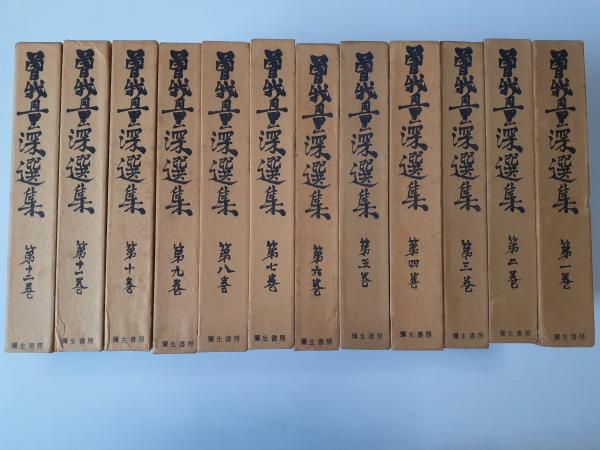 曽我量深選集
第十二巻
彌生書房
曽我量深選集
第十一巻
彌生書房
曽我量深選集
第十巻
彌生書房
曽我量深選集
第九巻
彌生書房
曽我量深選集
第八巻
彌生書房
曽我量深選集
第七巻
彌生書房
曽我量深選集
第六巻
彌生書房
曽我量深選集
第五巻
彌生書房
曽我量深選集
第四巻
彌生書房
曽我量深選集
第三巻
彌生書房
曽我量深選集
第二巻
彌生書房
曽我量深選集
第一巻
彌生書房